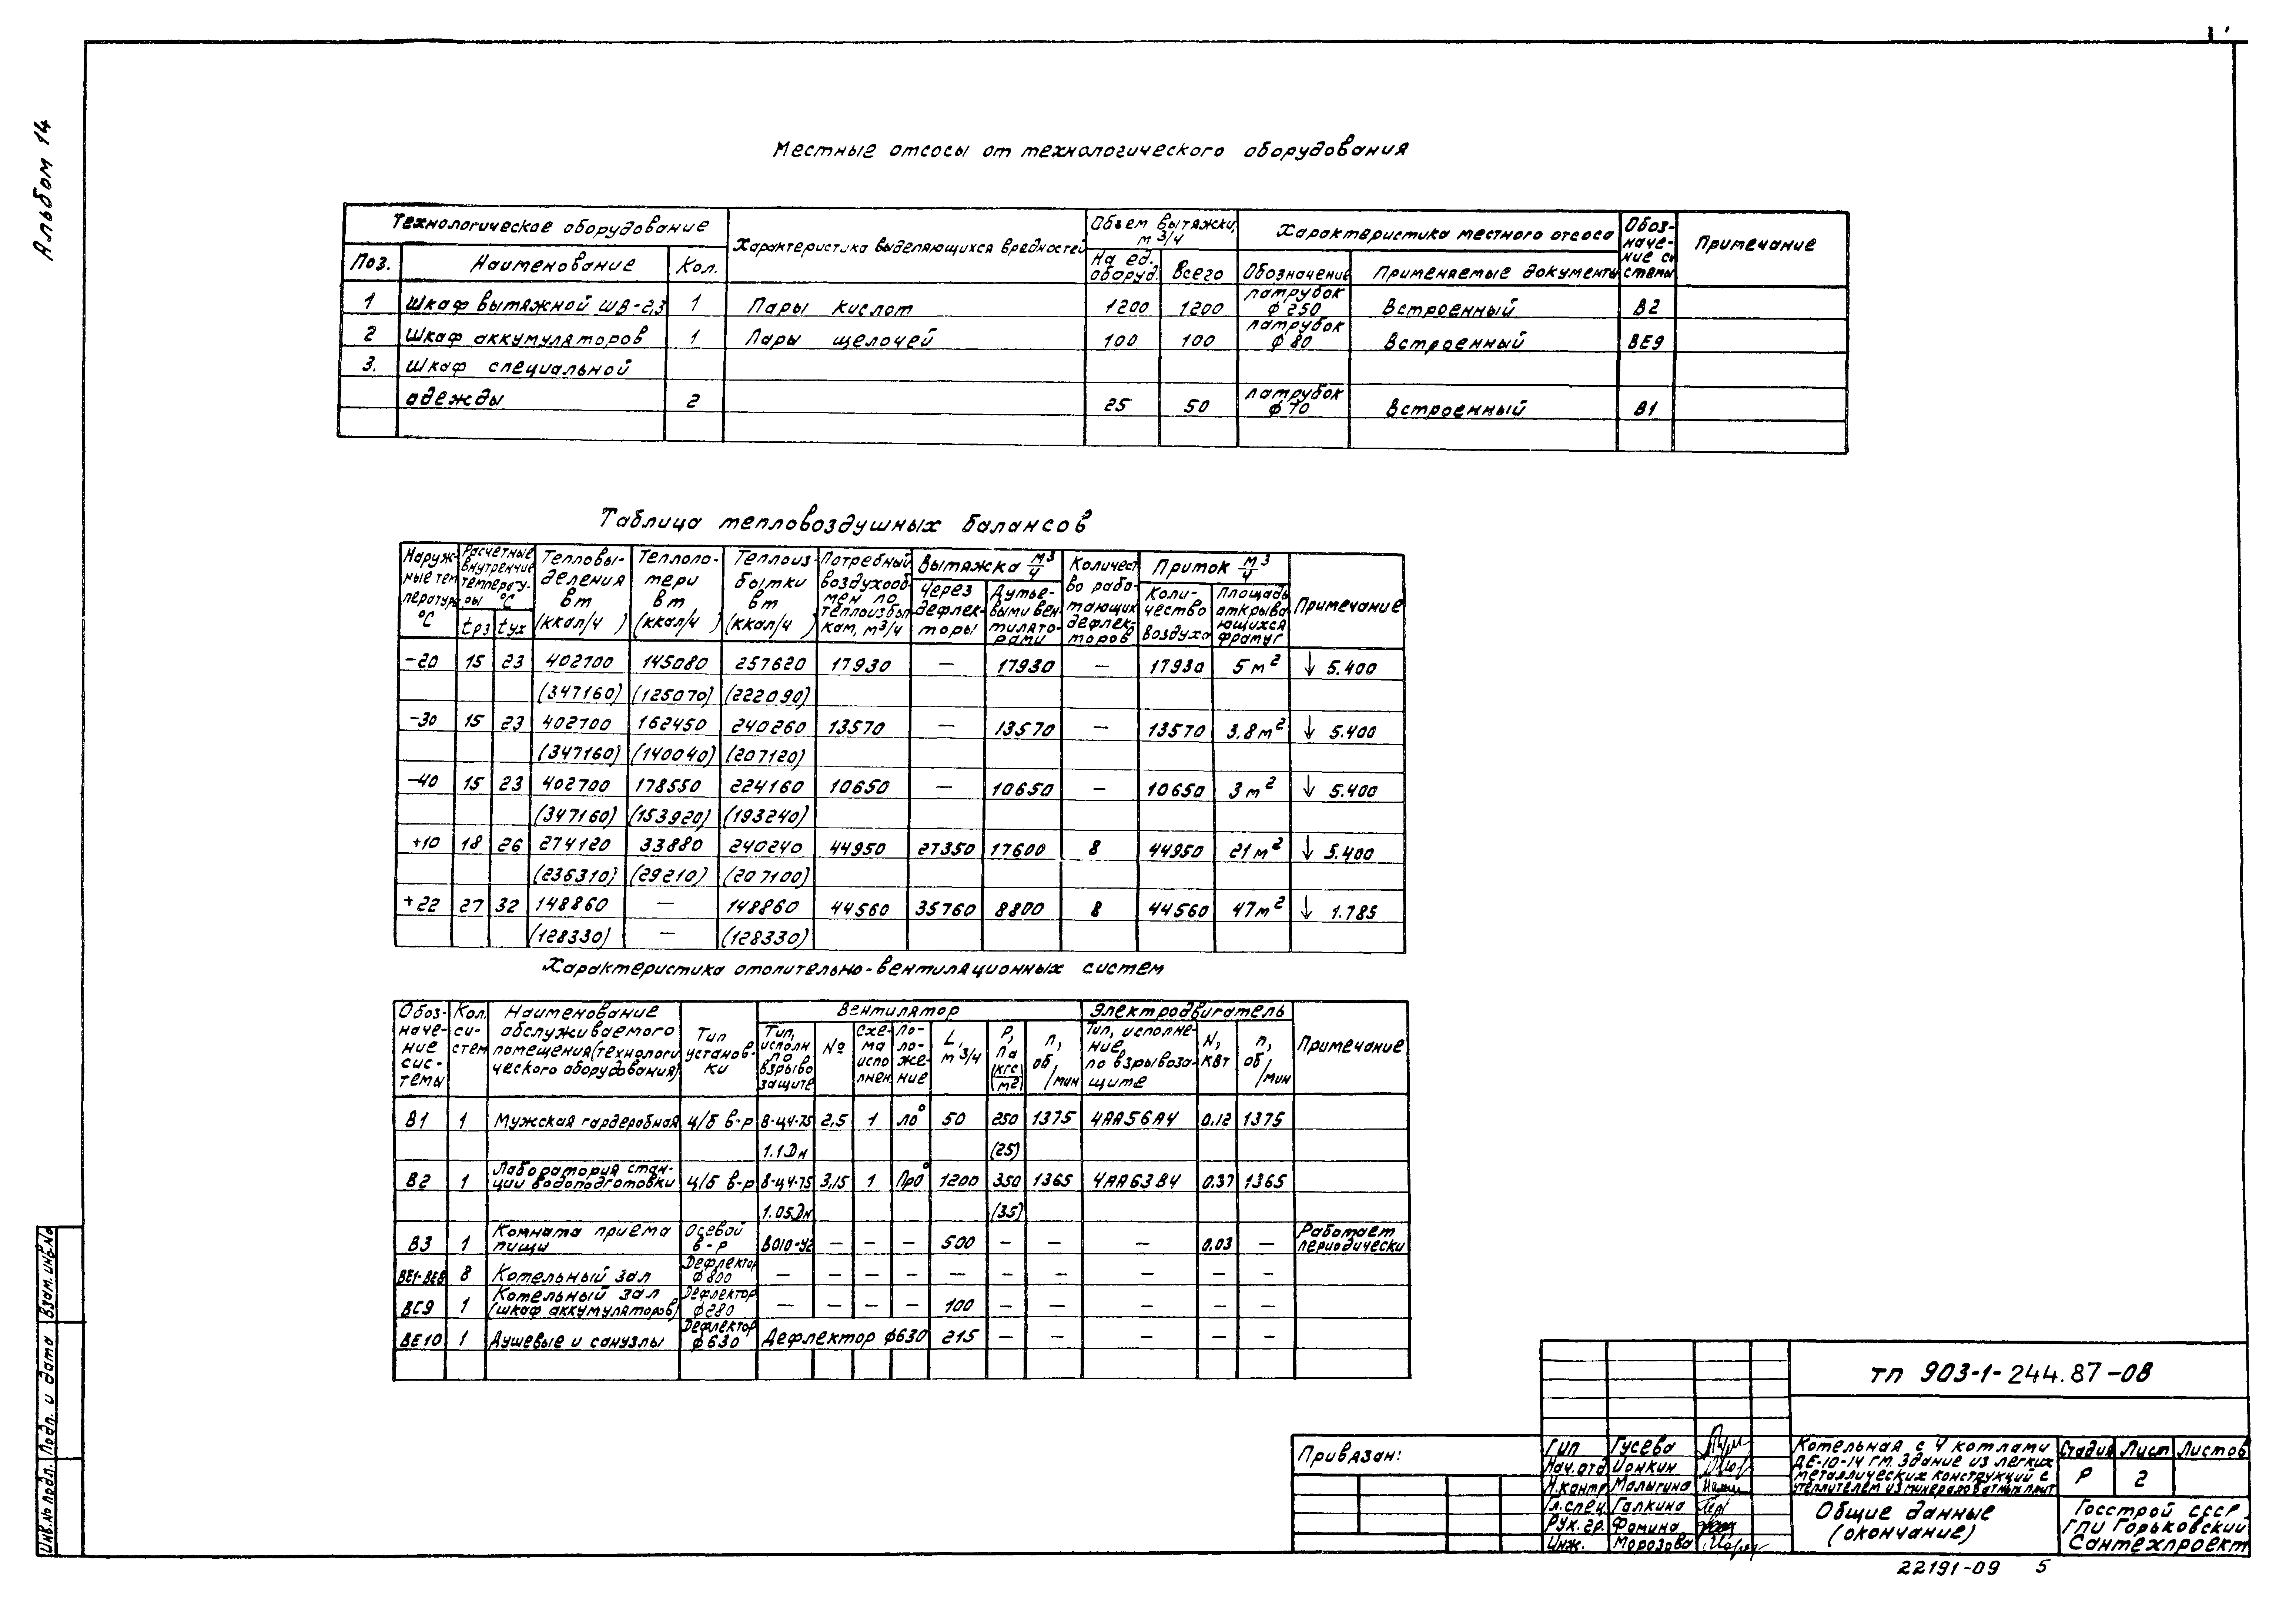 Альбом 14
Местные отсосы от технологического оборудования
Технологическое оборудование | Характеристика выделяющихся вредностей | Объем вытяжки, м3/ч | Характеристика местного отсоса | Обозначение системы | Примечание
Поз. | Наименование | Кол. | На ед. оборуд. | Всего | Обозначение | Применяемые документы
1 | Шкаф вытяжной ШВ-2,3 | 1 | Пары кислот | 1200 | 1200 | патрубок ф250 | Встроенный | В2
2 | Шкаф аккумуляторов | 1 | Пары щелочей | 100 | 100 | патрубок ф80 | Встроенный | ВЕ9
3. | Шкаф специальной
одежды | 2 | 25 | 50 | патрубок ф70 | Встроенный | В1
Таблица тепловоздушных балансов
Наружные температуры °С | Расчетные внутренние температуры °С | Тепловыделения вт (ккал/ч ) | Теплопотери вт (ккал/ч ) | Теплоизбытки вт (ккал/ч ) | Потребный воздухообмен по теплоизбыткам, м3/ч | Вытяжка м3/ч | Количество работающих дефлекторов | Приток м3/ч | Примечание
tрз | tух | Через дефлекторы | Дутьевыми вентиляторами | Количество воздуха | Площадь открывающихся фрамуг
-20 | 15 | 23 | 402700 | 145080 | 257620 | 17930 | — | 17930 | — | 17930 | 5м2 | ↓ 5.400
(347160) | (125070) | (222090)
-30 | 15 | 23 | 402700 | 162450 | 240260 | 13570 | — | 13570 | — | 13570 | 3,8м2 | ↓ 5.400
(347160) | (140040) | (207120)
-40 | 15 | 23 | 402700 | 178550 | 224160 | 10650 | — | 10650 | — | 10650 | 3м2 | ↓ 5.400
(347160) | (153920) | (193240)
+10 | 18 | 26 | 274120 | 33880 | 240240 | 44950 | 27350 | 17600 | 8 | 44950 | 21м2 | ↓ 5.400
(236310) | (29210) | (207100)
+22 | 27 | 32 | 148860 | — | 148860 | 44560 | 35760 | 8800 | 8 | 44560 | 47м2 | ↓ 1.785
(128330) | — | (128330)
Характеристика отопительно-вентиляционных систем
Обозначение системы | Кол. систем | Наименование обслуживаемого помещения (технологического оборудования) | Тип установки | Вентилятор | Электродвигатель | Примечание
Тип, исполн по взрывозащите | № | Схема исполнен | Положение | L, м3/ч | Р, Па (кгс/м2) | n, об/мин | Тип, исполнение, по взрывозащите | N, кВт | n, об/мин
В1 | 1 | Мужская гардеробная | ц/б в-р | В-Ц4-75 | 2,5 | 1 | Л0° | 50 | 250 | 1375 | 4АА56А4 | 0,12 | 1375
1.1Дн | (25)
В2 | 1 | Лаборатория станции водоподготовки | ц/б в-р | В-Ц4-75 | 3,15 | 1 | Пр0° | 1200 | 350 | 1365 | 4АА63В4 | 0.37 | 1365
1.05Дн | (35)
В3 | 1 | Комната приема пищи | Осевой в-р | ВО10-У2 | — | — | — | 500 | — | — | — | 0.03 | — | Работает периодически
ВЕ1-ВЕ8 | 8 | Котельный зал | Дефлектор ф800 | — | — | — | — | — | — | — | — | — | —
ВС9 | 1 | Котельный зал (шкаф аккумуляторов) | Дефлектор ф280 | — | — | — | — | 100 | — | — | — | — | —
ВЕ10 | 1 | Душевые и санузлы | Дефлектор ф630 | Дефлектор ф630 | 215 | — | — | — | — | —
Привязан:
ТП 903-1-244.87-ОВ
ГИП Гусева
Нач.отд Ионкин
Н.контр Малыгина
Гл.спец. Галкина
Рук.гр. Фомина
Инж. Морозова
Котельная с 4 котлами
ДЕ-10-14 ГМ. Здание из легких
металлических конструкций с
утеплителем из минераловатных плит
Стадия | Лист | Листов
Р | 2
Общие данные
(окончание)
Госстрой СССР
ГПИ Горьковский
Сантехпроект
22191-09 5
Инв.№ подл. | Подп. и дата | Взам.инв.№